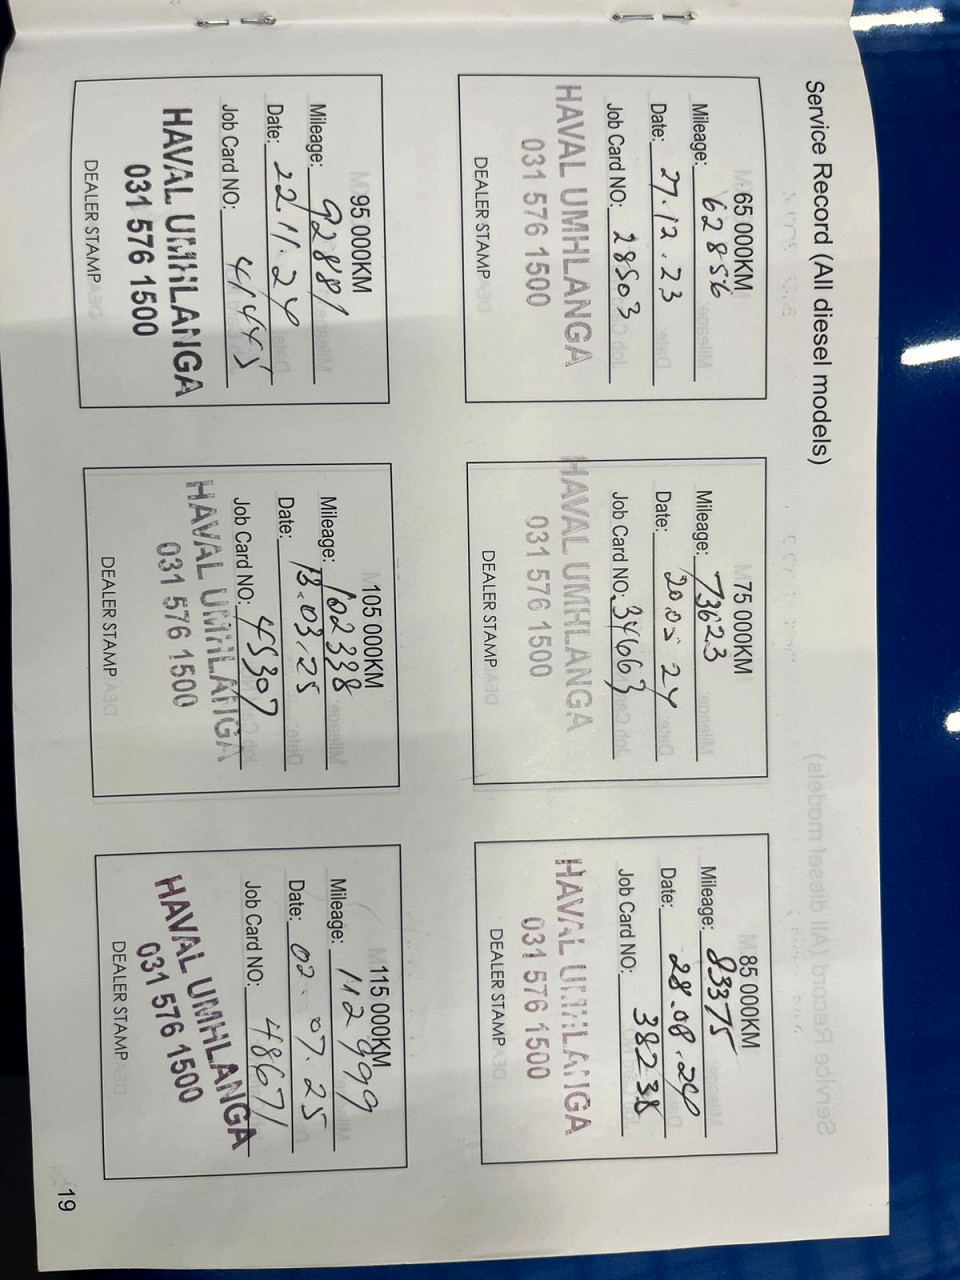 Service Record (All diesel models)
65 000KM
Mileage: 62856
Date: 27.12.23
Job Card NO: 28503
HAVAL UMHLANGA
031 576 1500
DEALER STAMP
75 000KM
Mileage: 73623
Date: 20.05 24
Job Card NO: 34663
HAVAL UMHLANGA
031 576 1500
DEALER STAMP
85 000KM
Mileage: 83375
Date: 28.08.24
Job Card NO: 38238
HAVAL UMHLANGA
031 576 1500
DEALER STAMP
95 000KM
Mileage: 92881
Date: 22.11.24
Job Card NO: 41445
HAVAL UMHLANGA
031 576 1500
DEALER STAMP
105 000KM
Mileage: 102338
Date: 13.03.25
Job Card NO: 45307
HAVAL UMHLANGA
031 576 1500
DEALER STAMP
115 000KM
Mileage: 112999
Date: 02.07.25
Job Card NO: 48671
HAVAL UMHLANGA
031 576 1500
DEALER STAMP
19